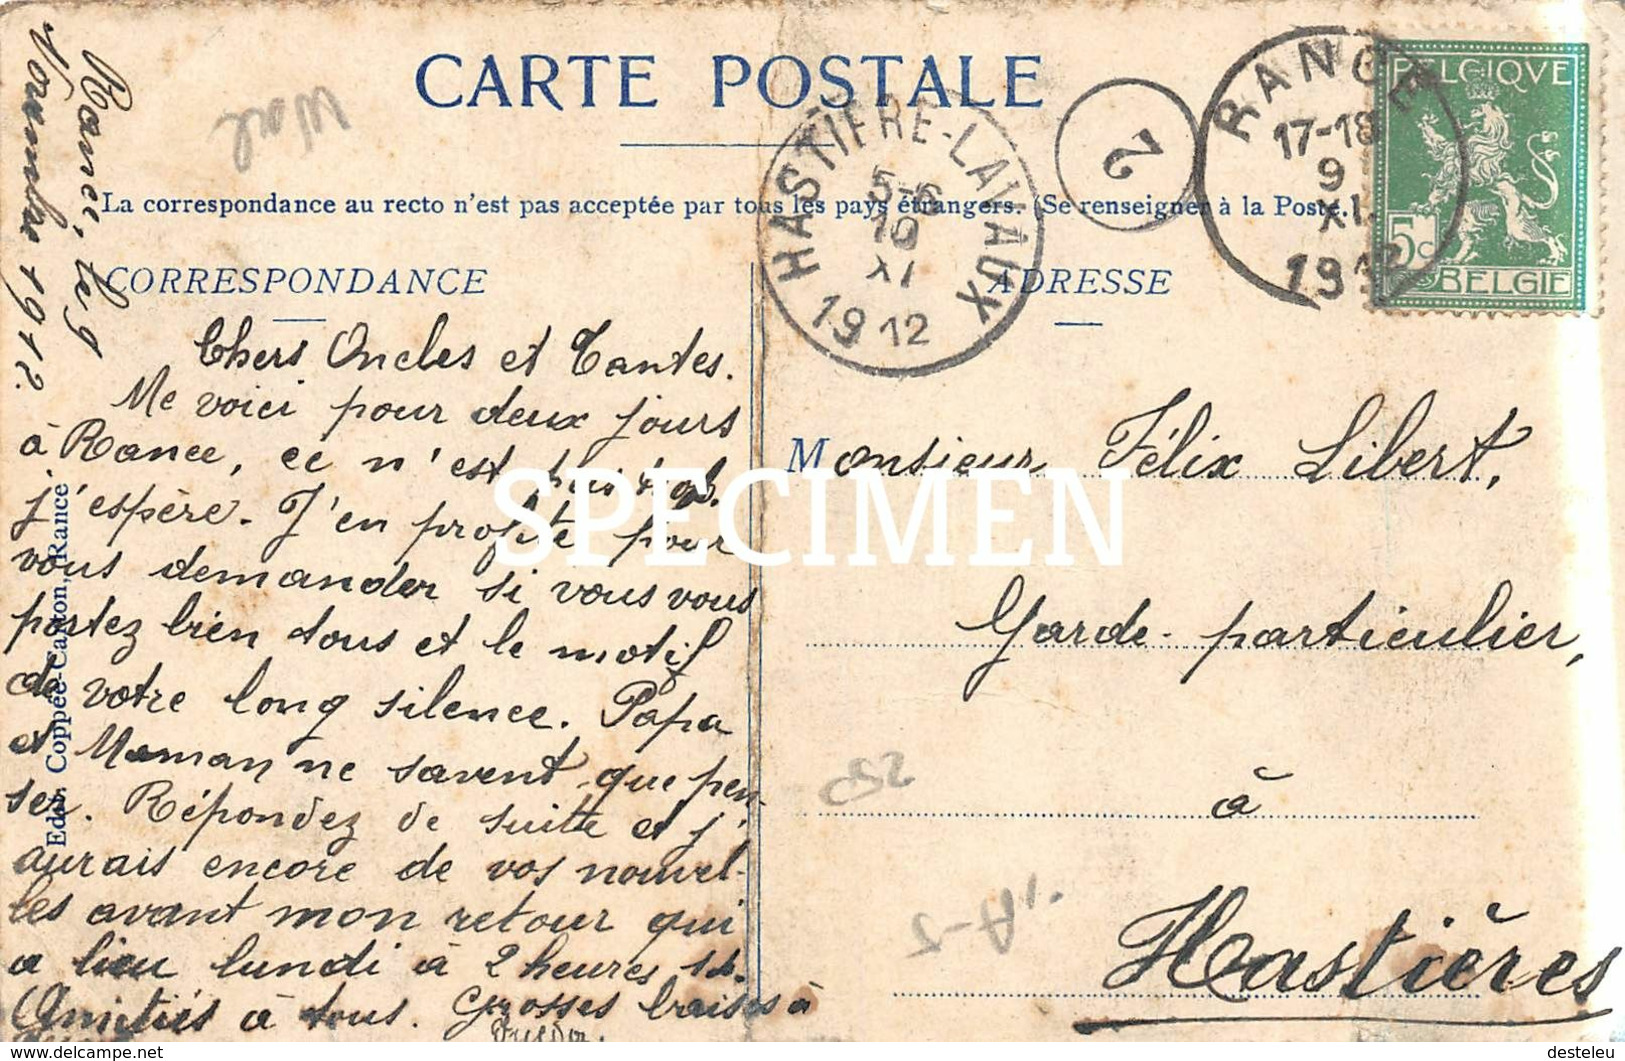 CARTE POSTALE
La correspondance au recto n'est pas acceptée par tous les pays étrangers. (Se renseigner à la Poste.)
CORRESPONDANCE
ADRESSE
HASTIÈRE-LAVAUX
5-6
10
XI
1912
2
RANCE
17-18
9
XI
1912
BELGIQVE
5c
BELGIE
Rance, le 9
Novembre 1912.
Chers Oncles et Tantes.
Me voici pour deux jours
à Rance, ce n'est pas
j'espère. J'en profite pour
vous demander si vous vous
portez bien tous et le motif
de votre long silence. Papa
et Maman ne savent que pen-
ser. Répondez de suite et j'
aurais encore de vos nouvel-
les avant mon retour qui
a lieu lundi à 2 heures
Amitiés à tous. Grosses baises à
Monsieur Félix Libert,
Garde-particulier,
à
Hastières
Edit. Coppée-Carton, Rance
SPECIMEN
desteleu